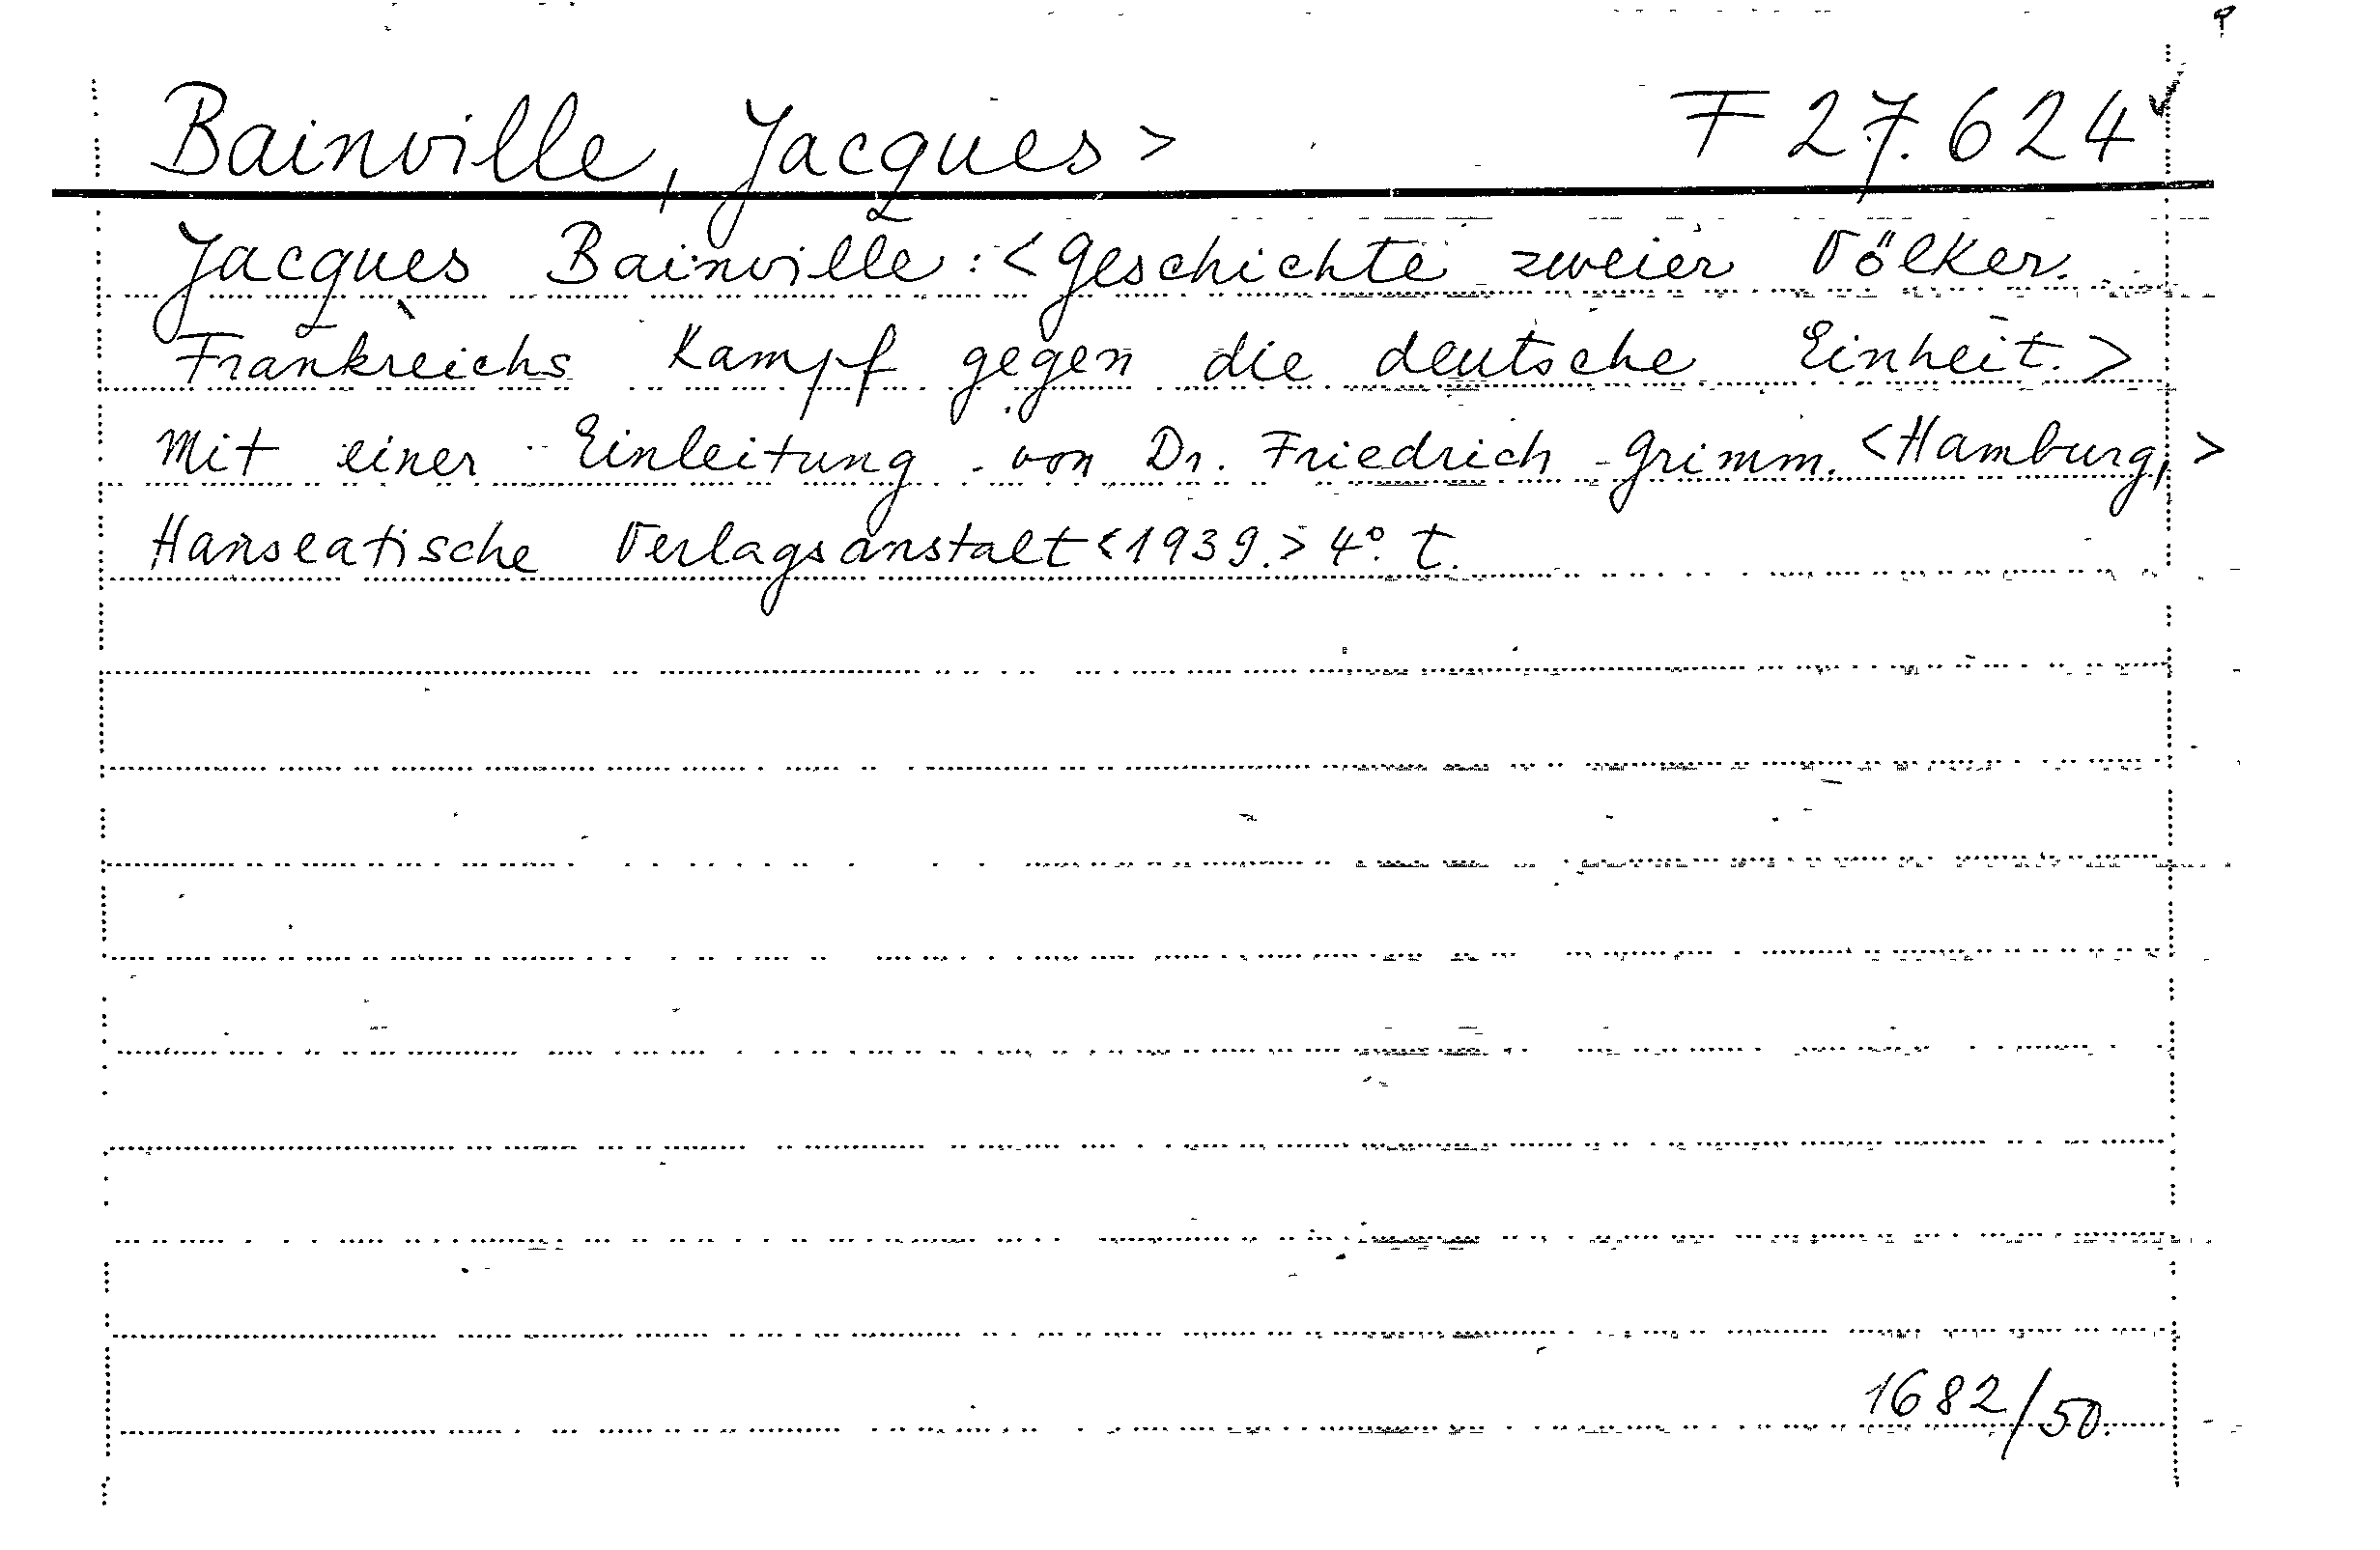 Bainville, Jacques> F 27.624
Jacques Bainville: <Geschichte zweier Völker.
Frankreichs Kampf gegen die deutsche Einheit.>
Mit einer Einleitung von Dr. Friedrich Grimm. <Hamburg,>
Hanseatische Verlagsanstalt <1939.> 4° t.
1682/50.